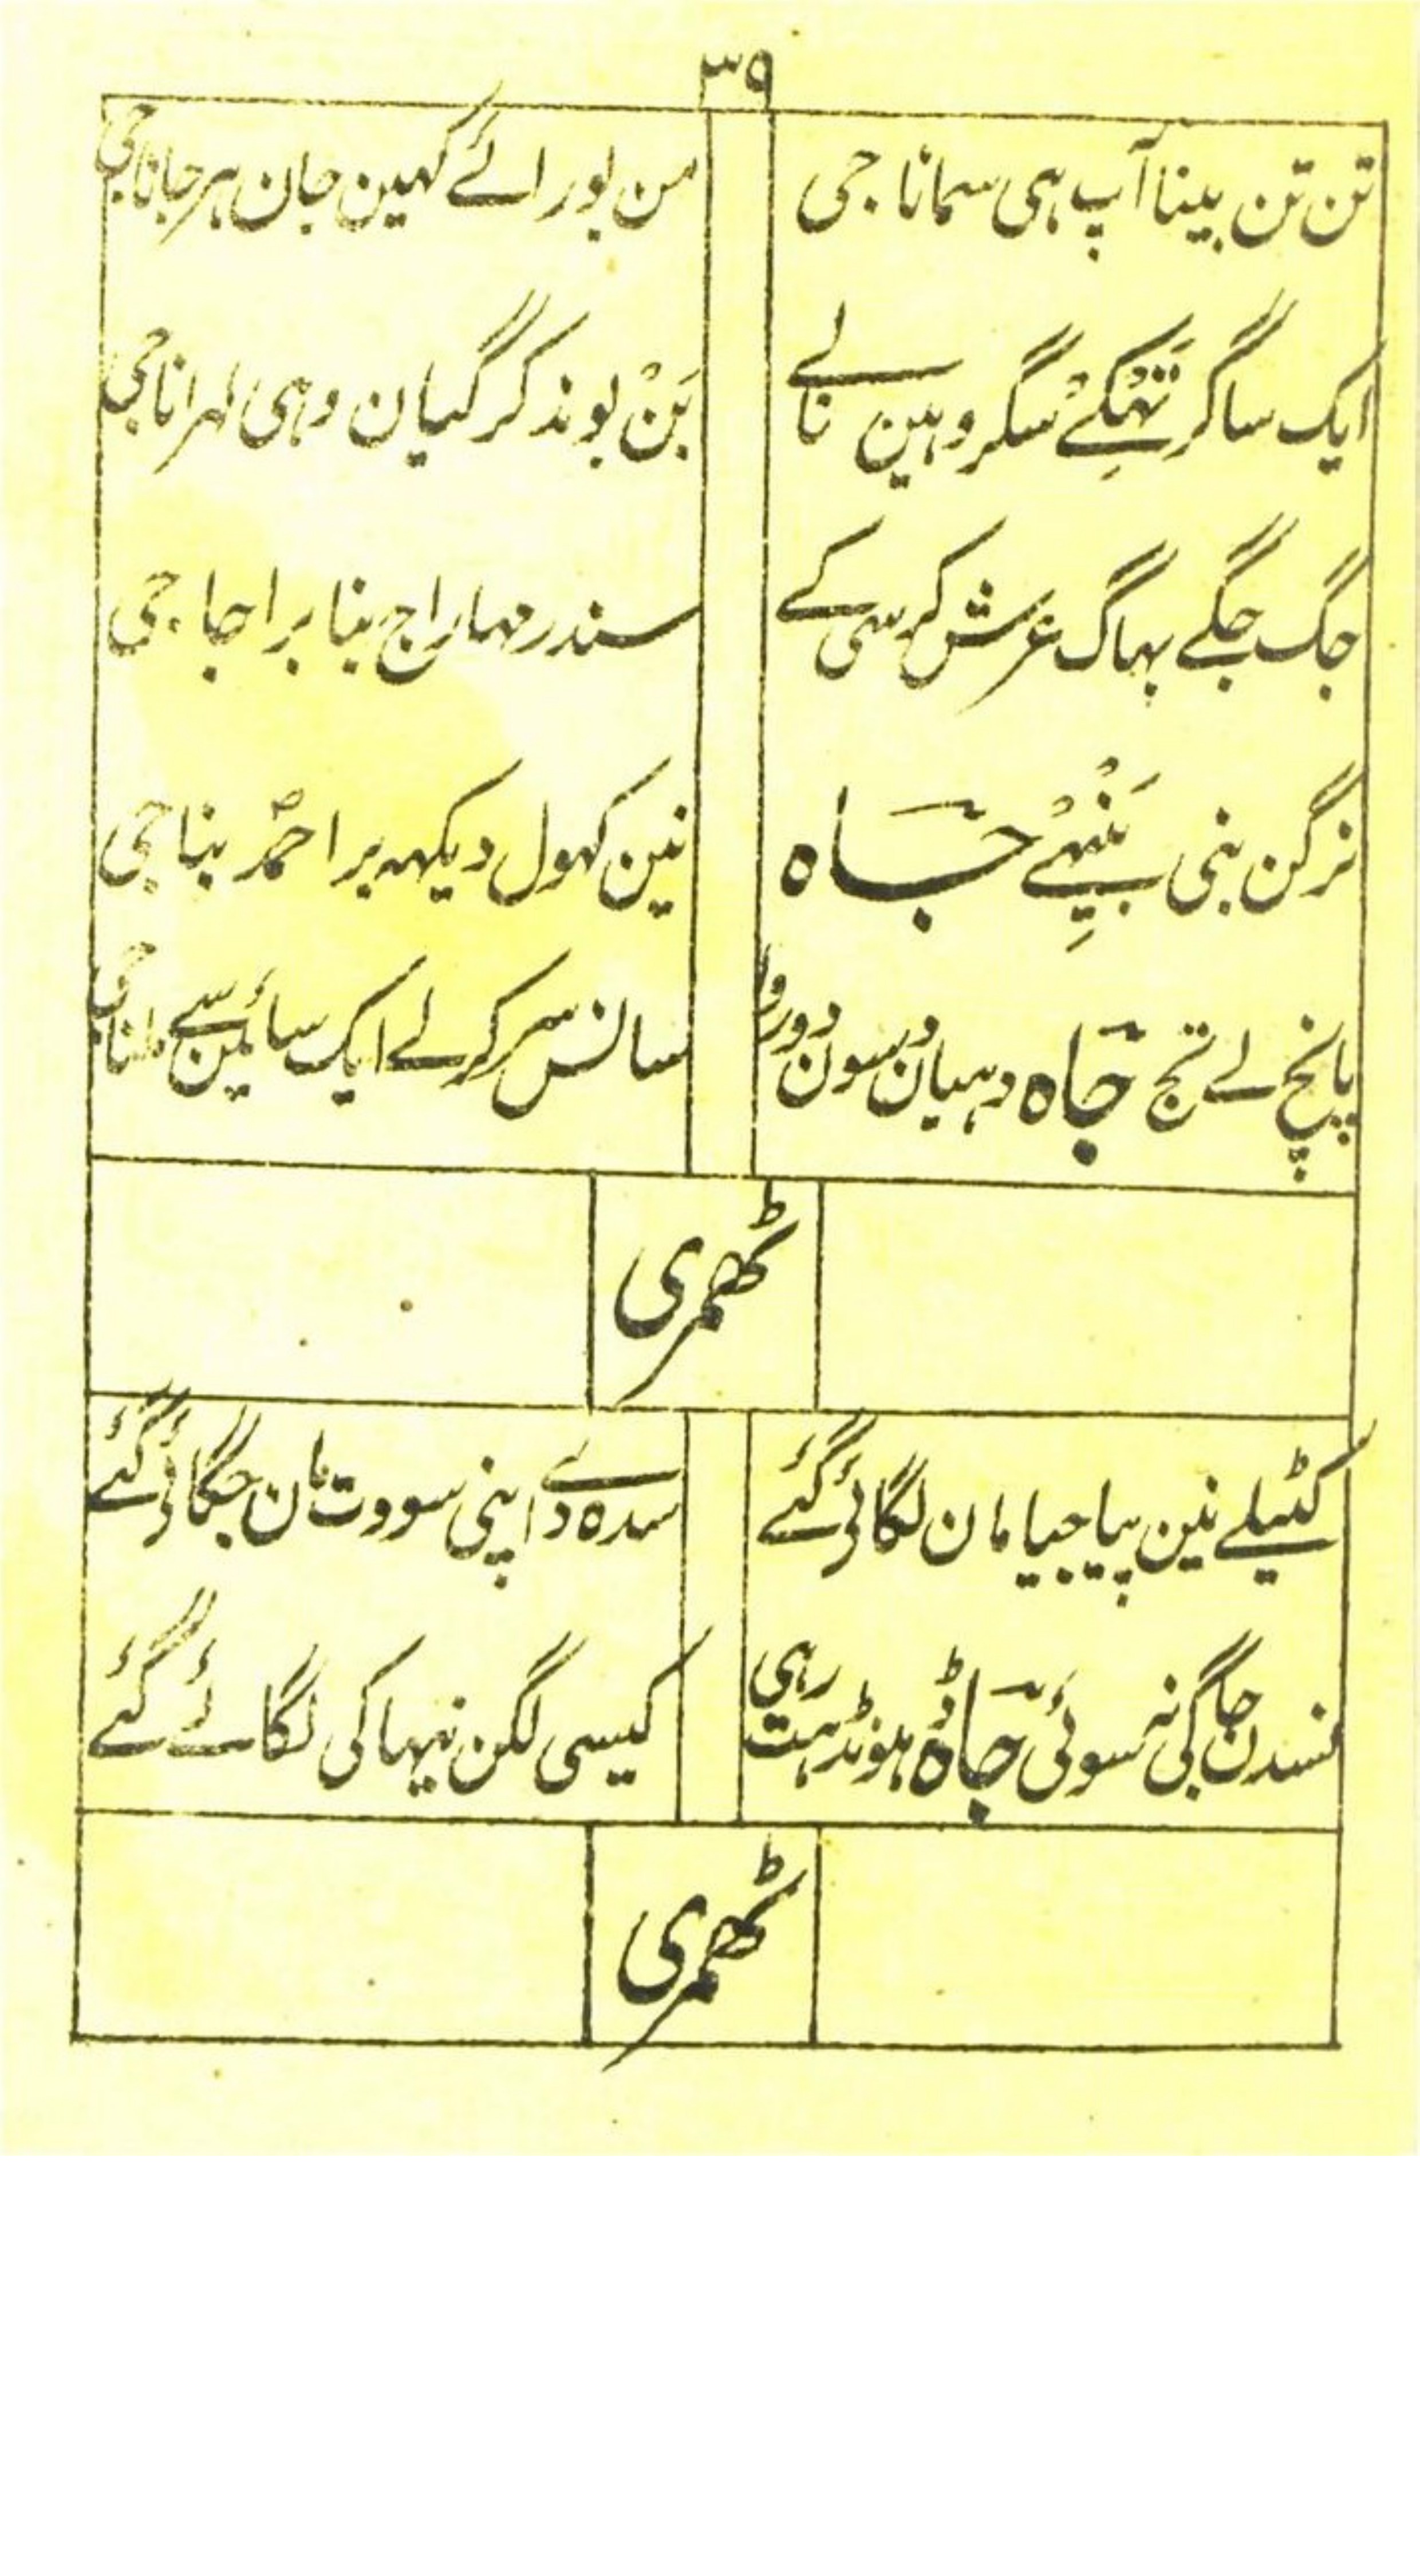 ۳۹
تن تن بینا آپ ہی سمانا جی
من بورائے کہین جان ہر جانا جی
ایک ساگر تَہْکے سگر وہین نالے
بَنْ بوند کر گیان وہی لہرانا جی
جگ جگے بہاگ عرش کرسی کے
سندر مہاراج بنا براجا جی
نرگن بنی بَنْہِے جَاہ
نین کہول دیکہہ برا احمدؐ بنا جی
پانچ لے تج جَاہ دہیان سون دور
سانس سر کر لے ایک سائین سے ملنا جی
ٹھمری
کٹیلے نین پیا جیا مان لگائی گئے
سدہ دے اپنی سووت مان جگائی گئے
نسدن جاگی نہ سوئی جَاہ ڈہونڈہت رہی
کیسی لگن نیہا کی لگائے گئے
ٹھمری